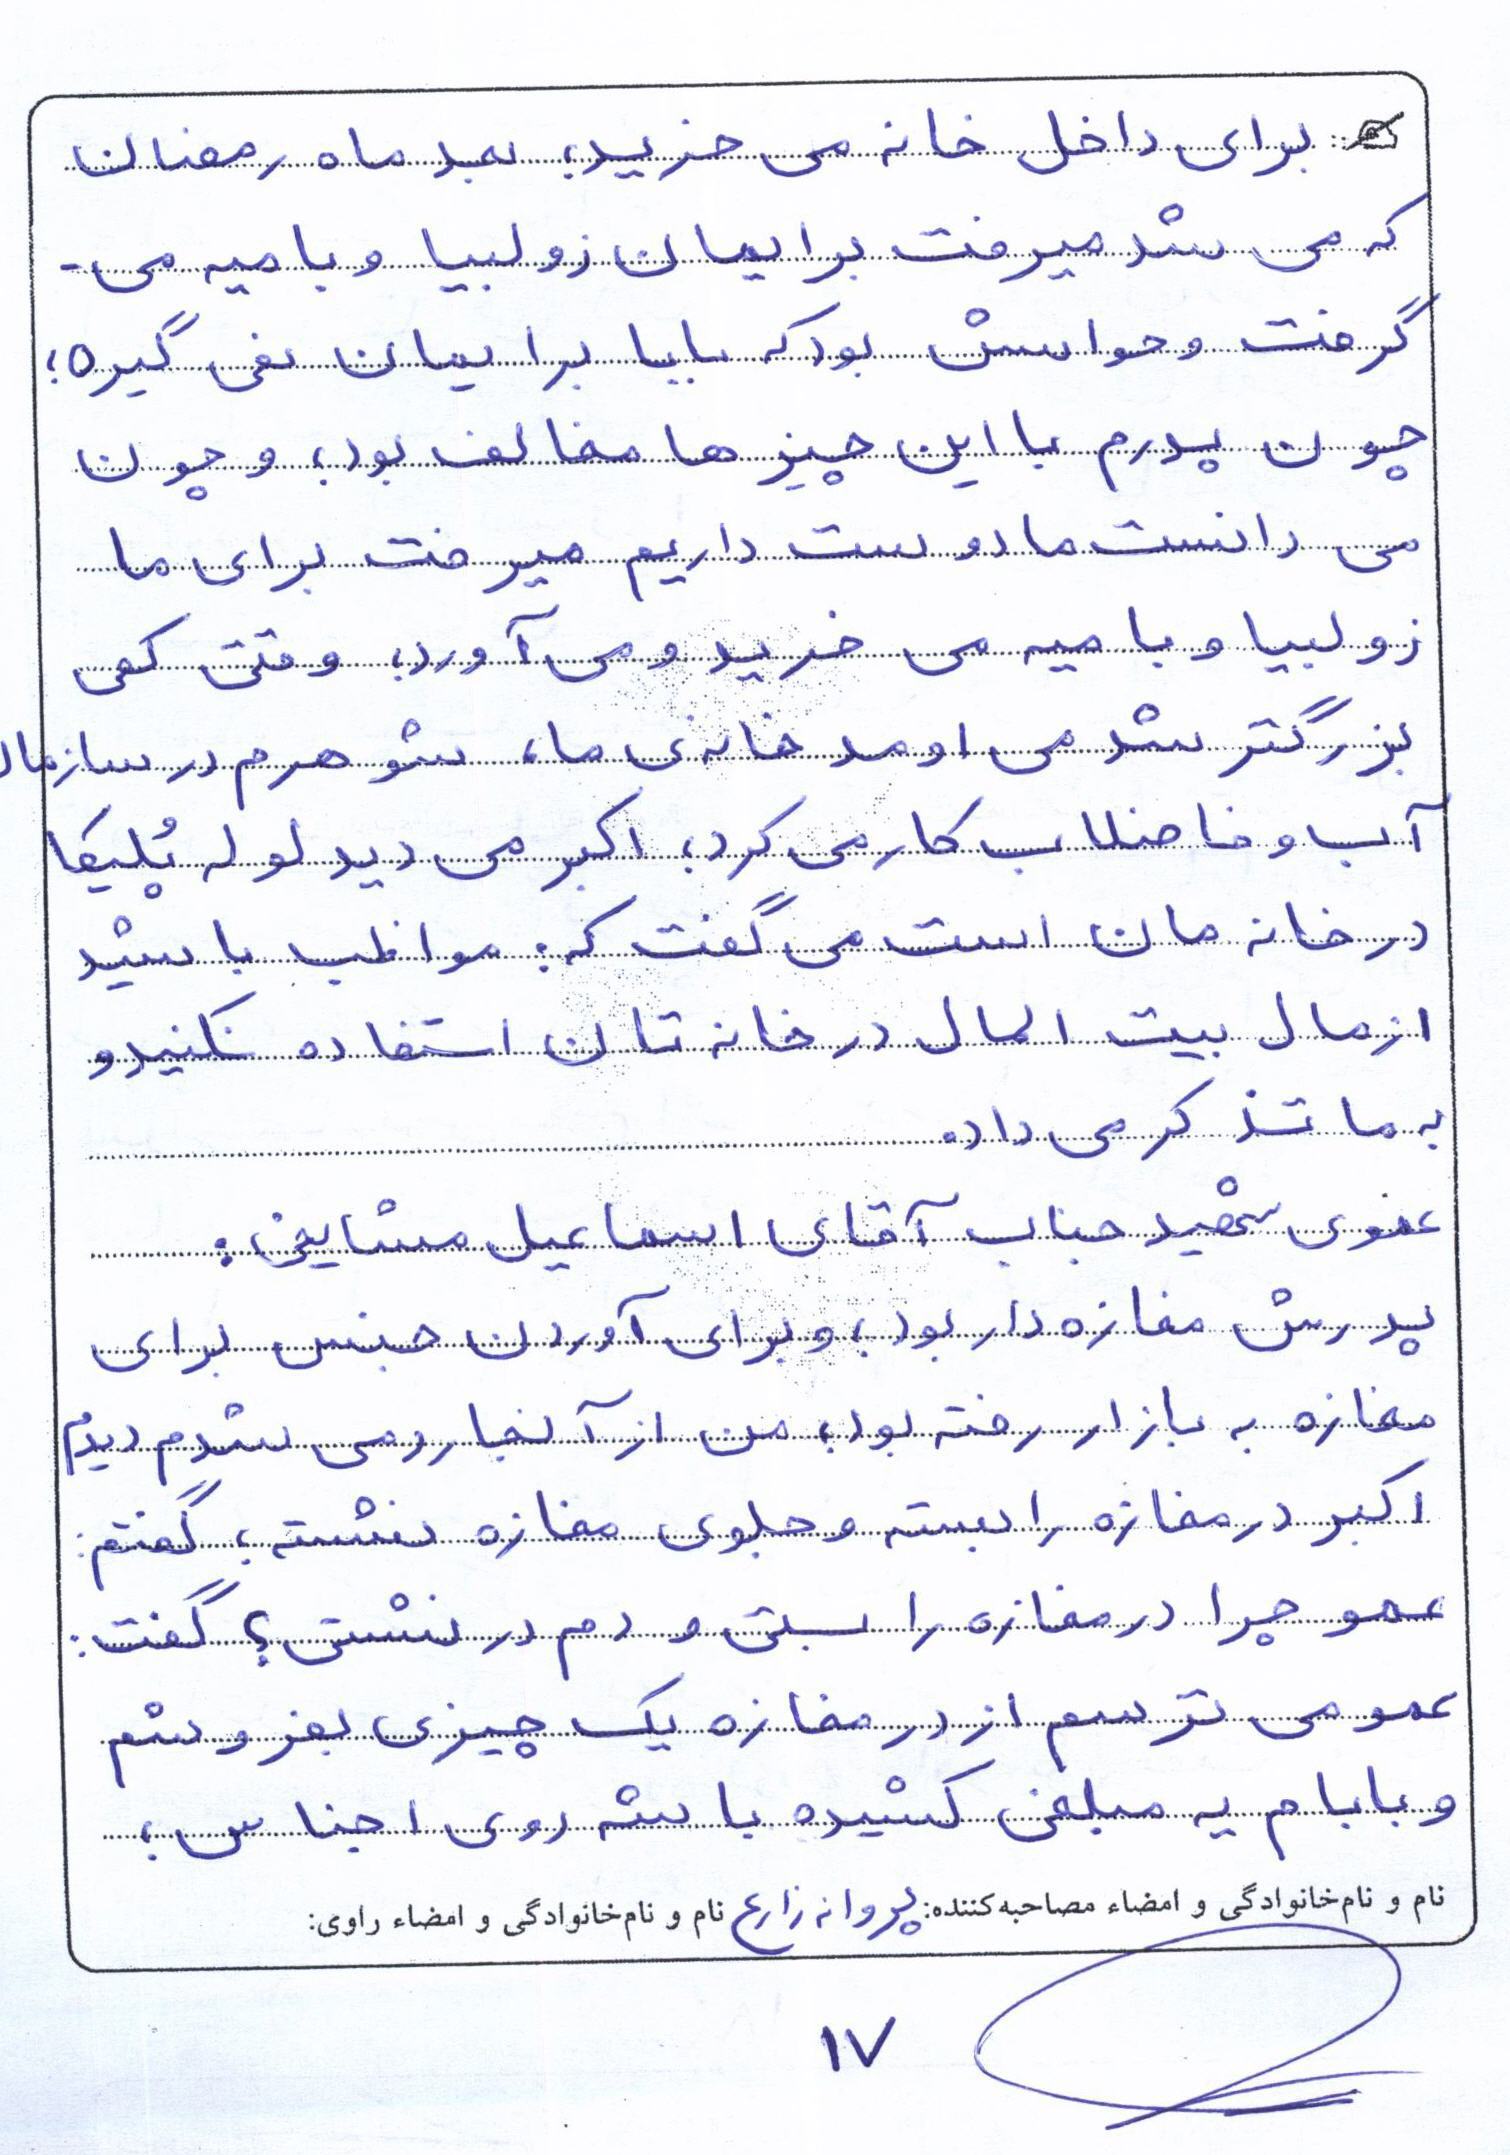 برای داخل خانه می خرید؛ بعد ماه رمضان
که می شد میرفت برایمان زولبیا و بامیه می-
گرفت و حواسش بود که بابا برایمان نمی گیره؛
چون پدرم با این چیزها مخالف بود؛ و چون
می دانست ما دوست داریم میرفت برای ما
زولبیا و بامیه می خرید و می آورد؛ وقتی کمی
بزرگتر شد می اومد خانه‌ی ما، شوهرم در سازمان
آب و فاضلاب کار می کرد؛ اکبر می دید لوله پُلیکا
در خانه مان است می گفت که: مواظب باشید
از مال بیت المال در خانه تان استفاده نکنید و
به ما تذکر می داد.
عموی شهید جناب آقای اسماعیل مشایخی:
پدرش مغازه دار بود؛ و برای آوردن جنس برای
مغازه به بازار رفته بود؛ من از آنجا رد می شدم دیدم
اکبر در مغازه را بسته و جلوی مغازه نشسته؛ گفتم:
عمو چرا در مغازه را بستی و دم در نشستی؟ گفت:
عمو می ترسم از در مغازه یک چیزی بفروشم
و بابام یه مبلغی کشیده باشه روی اجناس؛
نام و نام‌خانوادگی و امضاء مصاحبه‌کننده: پروانه زارع نام و نام‌خانوادگی و امضاء راوی:
۱۷